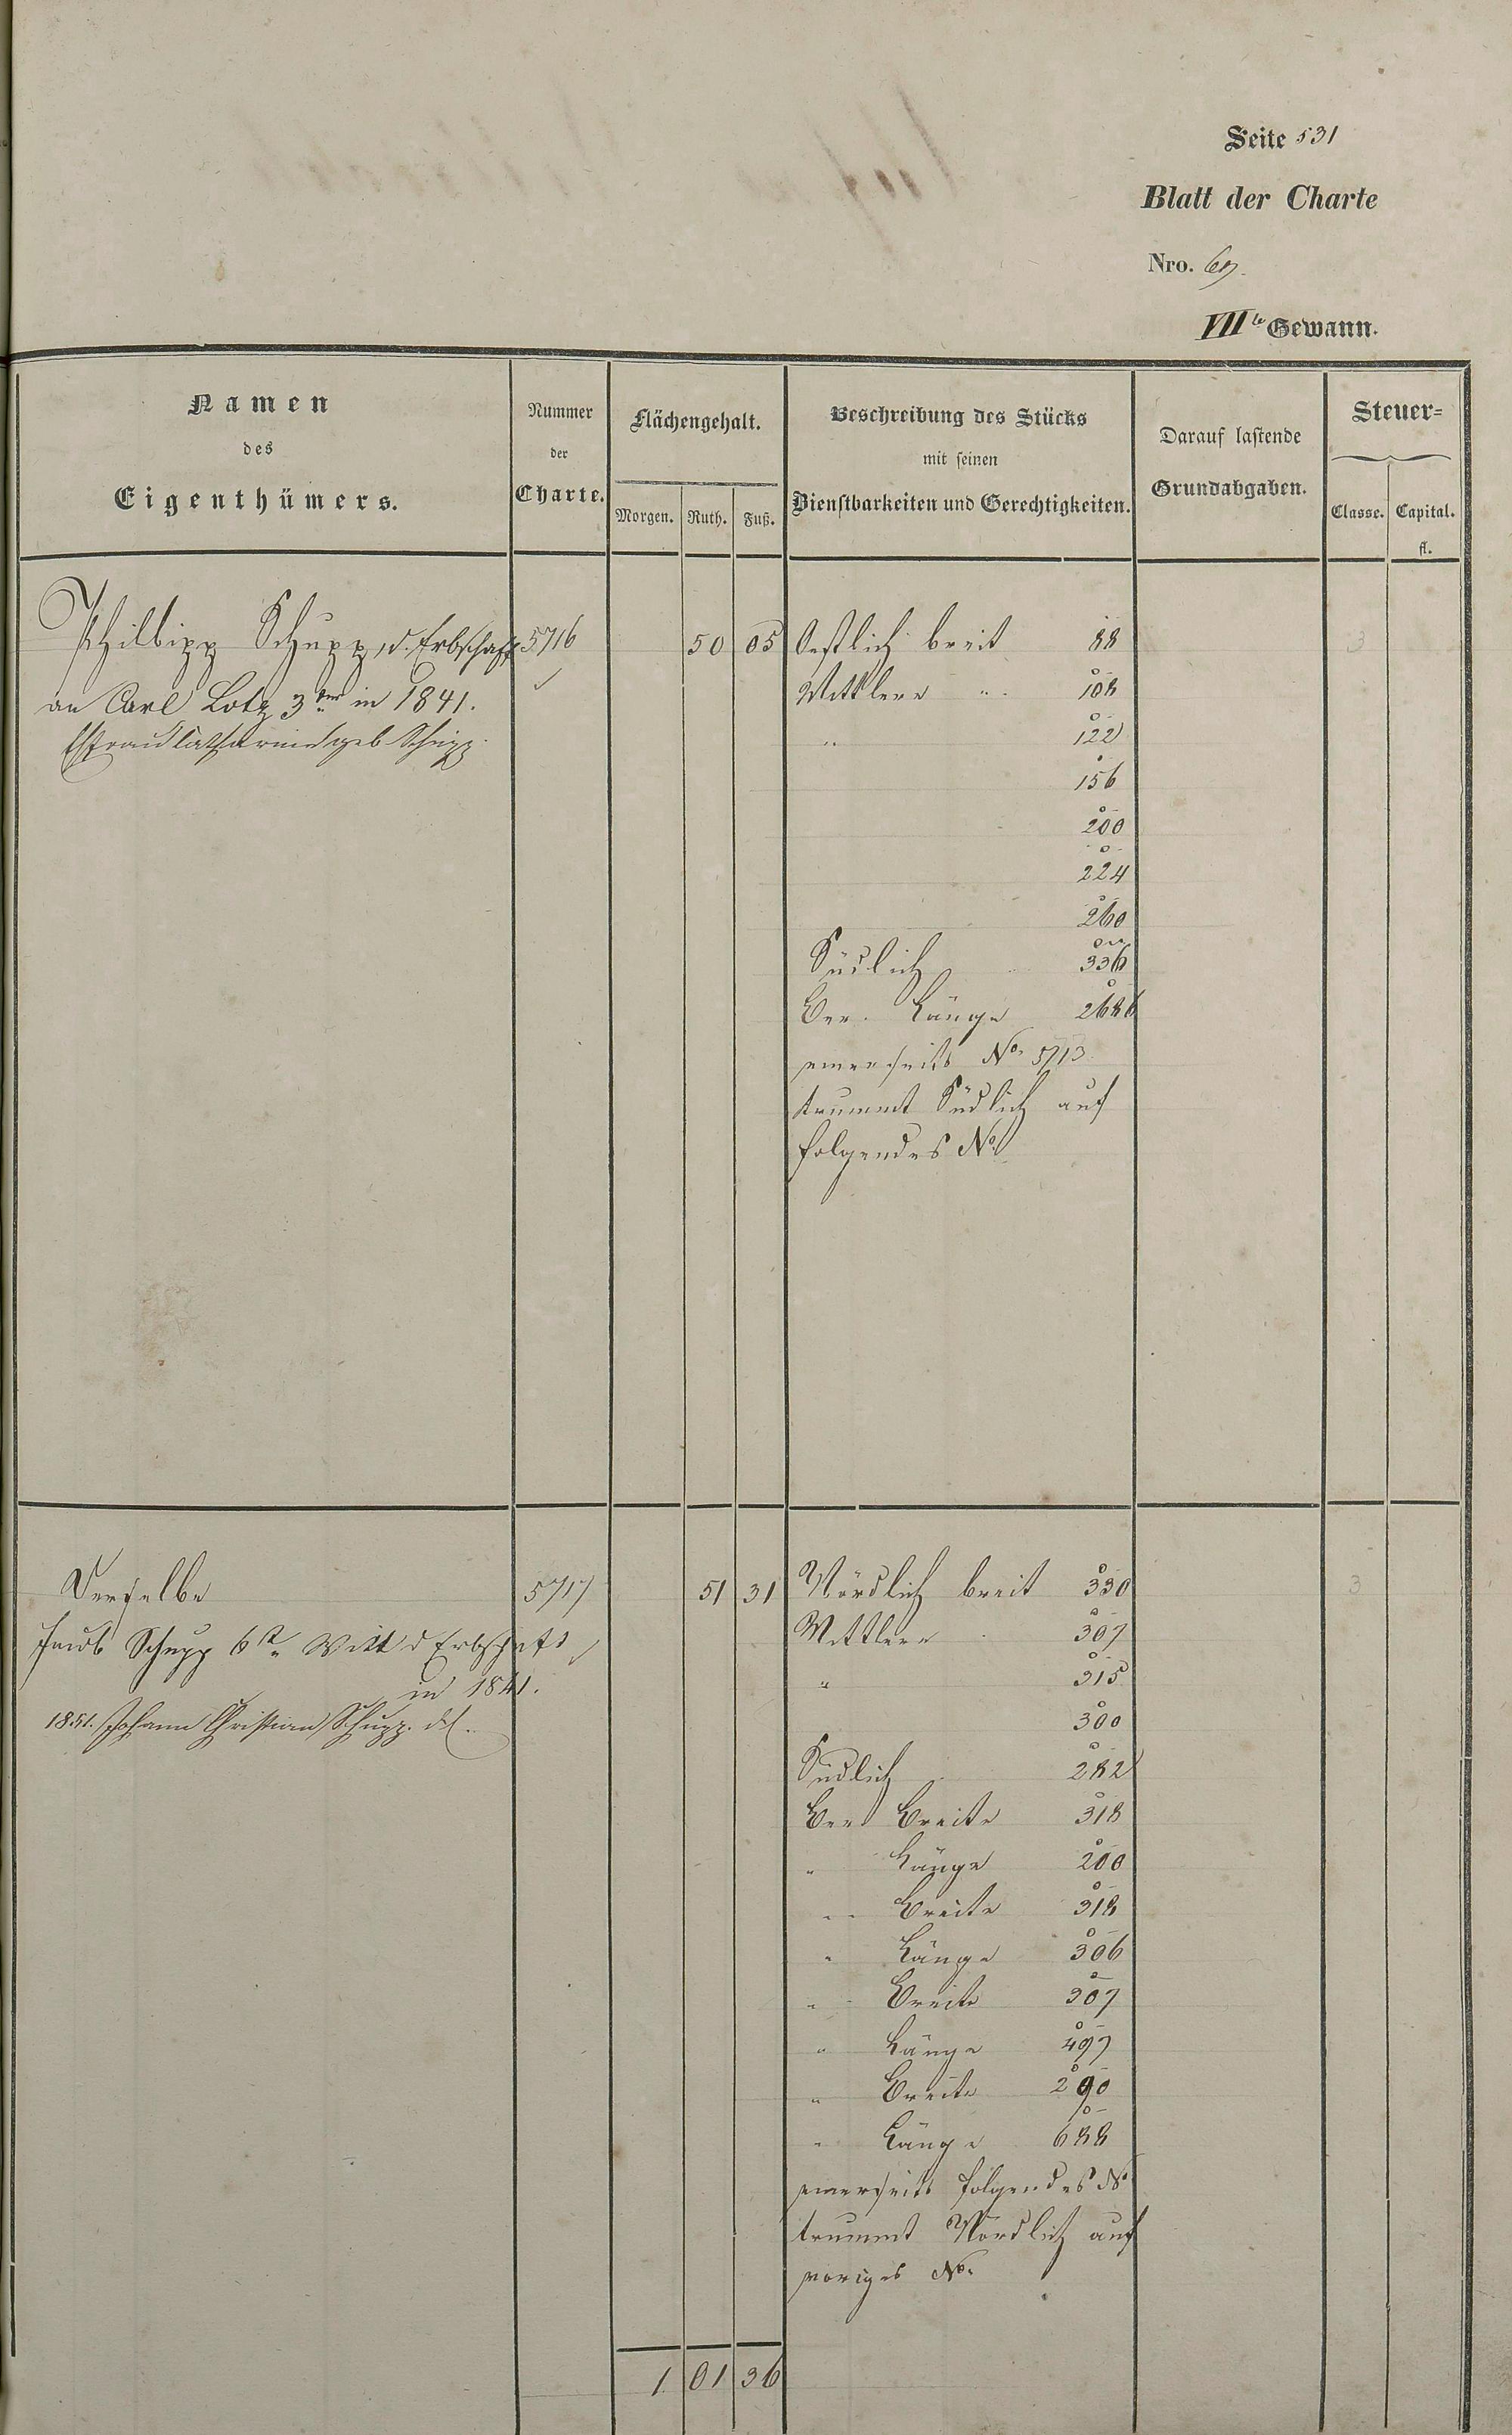 Seite 531
Blatt der Charte
Nro. 67.
VIIte Gewann.
Namen
des
Eigenthümers.
Nummer
der
Charte.
Flächengehalt.
Morgen. Ruth. Fuß.
Beschreibung des Stücks
mit seinen
Dienstbarkeiten und Gerechtigkeiten.
Darauf lastende
Grundabgaben.
Steuer=
Classe. Capital.
fl.
Philipp Schupp, d. Erbschaft 5716 50 05 Oestlich breit 88 3
an Carl Lotz 3ter in 1841. Mittlere " 108
Ehefrau Catharine geb Schupp. " 122
156
200
224
260
Südlich 336
Ver. Länge 2686
einerseits No. 5713
trummt Südlich auf
folgendes No
Derselbe 5717 51 31 Nördlich breit 330 3
Jacob Schupp 6r Witt d Erbschaft Mittlere 307
in 1841. " 315
1851. Johann Christian Schupp. 300
Südlich 282
Ver Breite 318
" Länge 200
" Breite 318
" Länge 306
" Breite 307
" Länge 497
" Breite 290
" Länge 688
einerseits folgendes No
trummt Nördlich auf
voriges No.
1 01 36